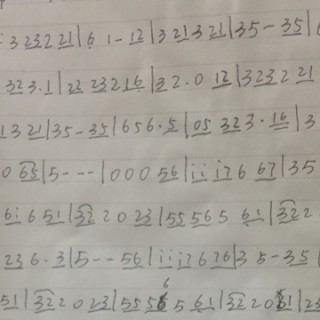 3 232 21 | 6 1 - 12 | 3 21 3 21 | 35 - 35 |
323 · 1 | 22 23216 | 32 · 0 12 | 3232 21
1321 | 35 - 35 | 656 · 5 | 05 323 · 16 | 3
0 65 | 5 - - - | 0 0 0 56 | i i i76 67 | 35
6i 651 | 32 2 0 23 | 55 56 5 61 | 32 2 ·
236 · 3 | 5 - - 56 | i i i7676 | 35 - 35 |
51 | 32 2 0 23 | 55 56 5 61 | 32 2 0 61 | 23